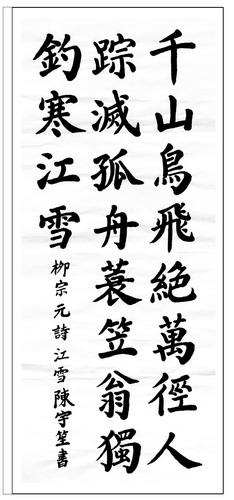 千山鳥飛絶萬徑人
踪滅孤舟蓑笠翁獨
釣寒江雪
柳宗元詩江雪陳宇笙書